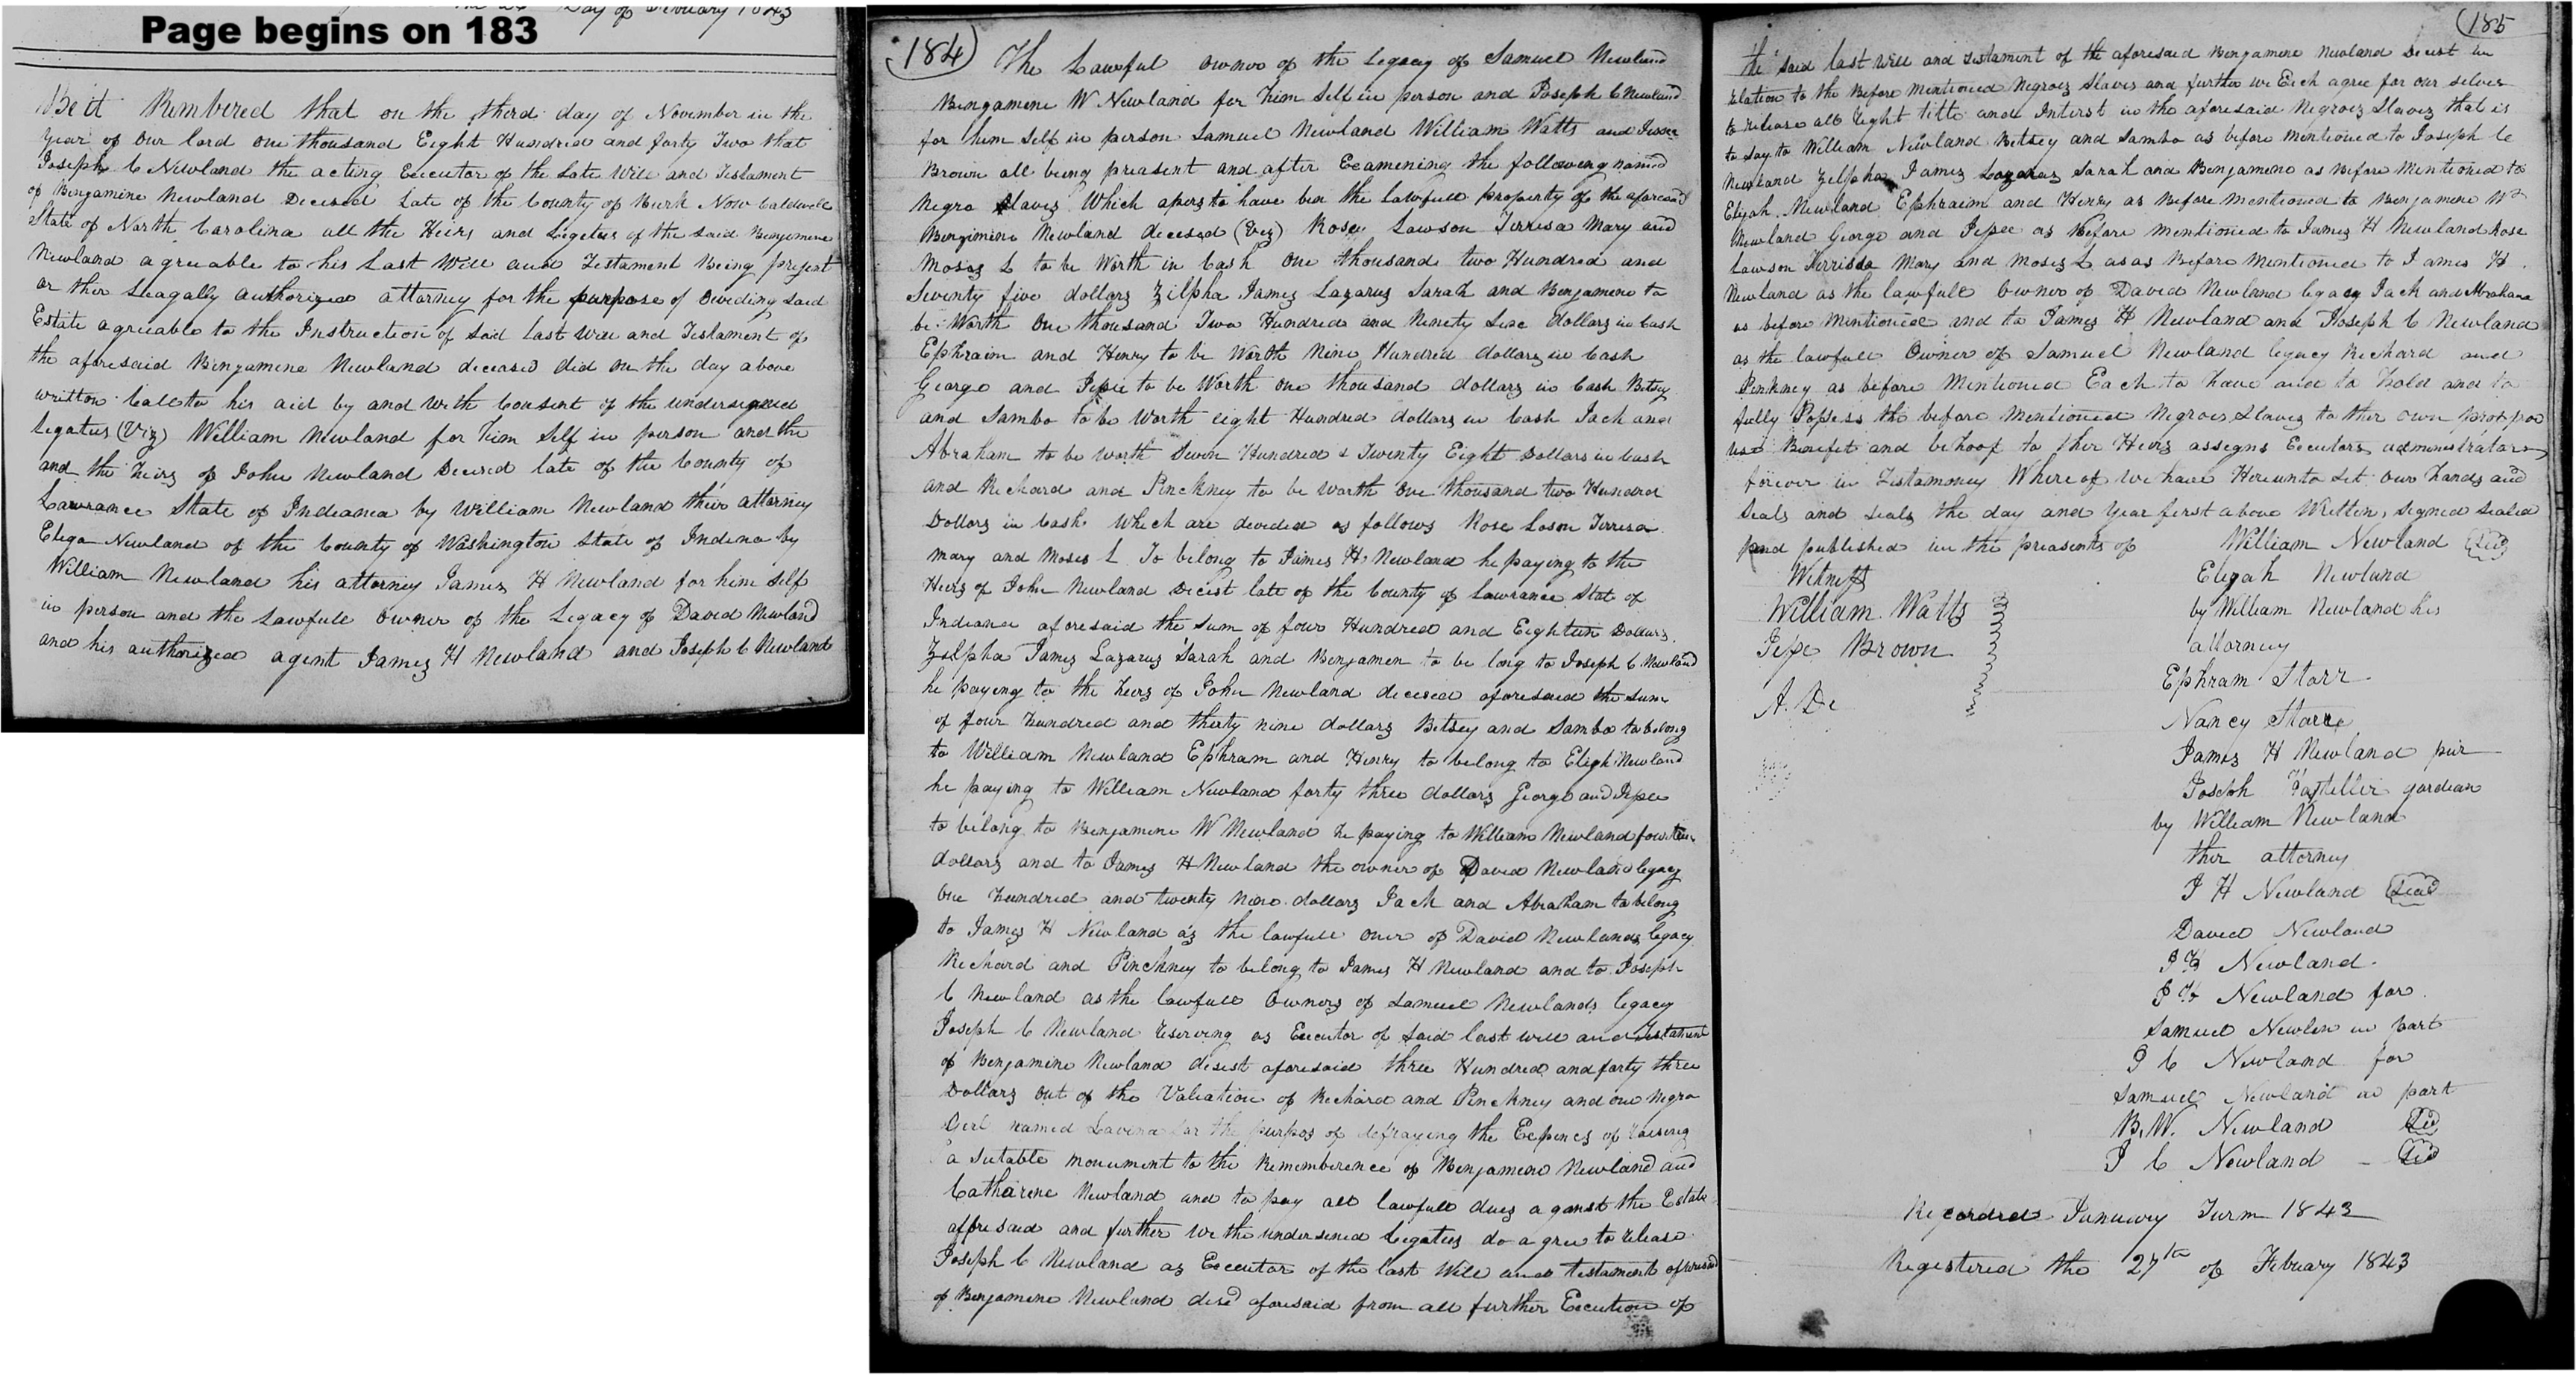 Day of February 1843
Page begins on 183
Be it Rembered that on the third day of November in the
year of our lord one thousand Eight Hundred and forty Two that
Joseph C Newland the acting Executor of the Late Will and Testament
of Benjamine Newland Decesed Late of the County of Burk Now Caldwell
State of North Carolina all the Heirs and Legetees of the said Benjamine
Newland agreuable to his Last Will and Testament Being present
or ther Leagally authorized attorney for the purpose of Deveding said
Estate agreuable to the Instruction of said Last Will and Testament of
the aforesaid Benjamine Newland deceased did on the day above
written Call to his aid by and with Consent of the undersigned
Legatees (Viz) William Newland for him Self in person and the
and the heirs of John Newland Decesed late of the County of
Lawrance State of Indeanea by William Newland their attorney
Eliga Newland of the County of Washington State of Indena by
William Newland his attorney James H Newland for him self
in person and the Lawfull owner of the Legacy of David Newland
and his authorized agent James H Newland and Joseph C Newland
184
The Lawful owner of the Legacy of Samuel Newland
Benjamine W Newland for him Self in person and Joseph C Newland
for him Self in person Samuel Newland William Watts and Jesse
Brown all being preasent and after Examening the following named
Negro Slaves Which apers to have ben the Lawfull property of the aforesaid
Benjimine Newland decesed (Viz) Rose Lawson Terresa Mary and
Moses L to be Worth in Cash One thousand two Hundred and
Seventy five dollars Zilpha James Lazarus Sarah and Benjamene to
be Worth One thousand Two Hundred and Ninety Six dollars in Cash
Ephraim and Henry to be Worth Nine Hundred dollars in Cash
George and Jesse to be Worth one thousand dollars in Cash Betsy
and Sambo to be Worth eight Hundred dollars in Cash Jack and
Abraham to be worth Seven Hundred & Twenty Eight Dollars in Cash
and Richard and Pinckney to be worth One thousand two Hundred
Dollars in Cash Which are devided as follows Rose Loson Terresa
Mary and Moses L To belong to James H Newland he paying to the
Heirs of John Newland Decest late of the County of Lawrance Stat of
Indiana aforesaid the Sum of four Hundred and Eighteen Dollars
Zilpha James Lazarus Sarah and Benjamen to be long to Joseph C Newland
he paying to the heirs of John Newland decesed aforesaid the sum
of four hundred and therty nine dollars Betsey and Sambo to belong
to William Newland Ephram and Henry to belong to Eligh Newland
he paying to William Newland forty three dollars George and Jesse
to belong to Benjamine W Newland he paying to William Newland fourteen
dollars and to James H Newland the owner of David Newland legacy
One hundred and twenty Nine dollars Jack and Abraham to belong
to James H Newland as the lawfull oner of David Newlands legacy
Richard and Pinckney to belong to James H Newland and to Joseph
C Newland as the lawfull Owners of Samuel Newlands legacy
Joseph C Newland Reserving as Executor of said last will and testament
of Benjamine Newland desest aforesaid three Hundred and forty three
Dollars out of the Valiation of Richard and Pinckney and one Negro
Girl named Lavina for the purpos of defraying the Expences of raising
a Sutable monument to the Rememberence of Benjamine Newland and
Catharine Newland and to pay all lawfull dues aganst the Estate
afforesaid and further we the undersined Legatees do agree to release
Joseph C Newland as Executor of the last Will and testament aforesaid
of Benjamene Newland desed aforesaid from all further Execution of
185
the said last Will and testament of the aforesaid Benjamine Newland Decest in
Relation to the Before mentioned Negroes Slaves and further we Each agree for our selves
to release all Right title and Interst in the aforesaid Negroes Slaves that is
to say to William Newland Betsey and Sambo as before mentioned to Joseph C
Newland Zilpha James Lazarus Sarah and Benjamene as Before mentioned to
Elijah Newland Ephraim and Henry as Before mentioned to Benjamine W
Newland George and Jesse as Before mentioned to James H Newland Rose
Lawson Terrissa Mary and Moses L as as Before mentioned to James H
Newland as the lawfull Owner of David Newland legacy Jack and Abraham
as before mentioned and to James H Newland and Joseph C Newland
as the lawfull Owner of Samuel Newland legacy Richard and
Pinkney as before mentioned Each to have and to hold and to
fully Possess the before mentioned Negroes Slaves to ther own prop per
use Benefit and behoof to ther Heirs assigns Exeutors administrators
forever in Testamony Where of we have Hereunto Set Our hands and
Seals and Seals the day and year first above Written Signed Sealed
and published in the preasents of
William Newland Seal
Witness
Elijah Newland
William Watts
by William Newland his
Jesse Brown
attorney
Ephram Starr
A. De
Nancy Starre
James H Newland pur
Joseph gardean
by William Newland
ther attorney
J H Newland Seal
David Newland
J H Newland
J H Newland for
Samuel Newlen in part
J C Newland for
Samuel Newland in part
B. W. Newland Seal
J C Newland – Seal
Recorded January Turm 1843
Registered the 27th of Febuary 1843